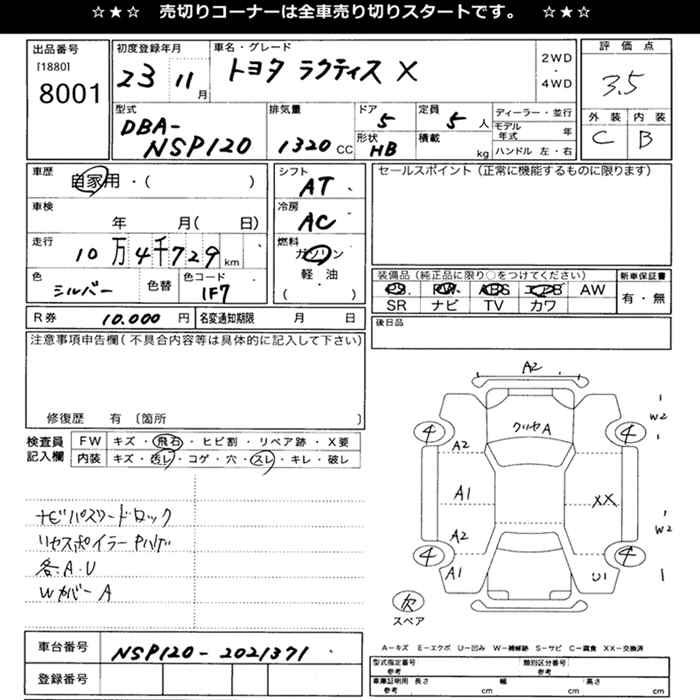 ☆★☆ 売切りコーナーは全車売り切りスタートです。 ☆★☆
出品番号
[1880]
8001
初度登録年月
23 11 月
車名・グレード
トヨタ ラクティス X
2WD
・
4WD
評価点
3.5
外装 内装
C B
型式
DBA-
NSP120
排気量
1320 CC
ドア
5
形状
HB
定員
5 人
積載
kg
ディーラー・並行
モデル年式 年
ハンドル 左・右
車歴
自家用 ・( )
車検
年 月( 日)
走行
10万4千729 km
色
シルバー
色替
色コード
1F7
シフト
AT
冷房
AC
燃料
ガソリン
軽油
( )
セールスポイント(正常に機能するものに限ります)
装備品(純正品に限り○をつけてください)
PS PW ABS エアB AW
SR ナビ TV カワ
新車保証書
有・無
R券 10.000 円
名変通知期限 月 日
後日品
注意事項申告欄(不具合内容等は具体的に記入して下さい)
修復歴 有 〔箇所 〕
検査員
記入欄
FW キズ・飛石・ヒビ割・リペア跡・X要
内装 キズ・汚レ・コゲ・穴・スレ・キレ・破レ
ナビパスワードロック
リヤスポイラー Pハゲ
各.A.U
Wカバー A
A2
クリヤA
4
4
A2
W2
A1
XX
A2
W2
4
4
A1
U1
欠
スペア
車台番号 NSP120-2021371
登録番号
A-キズ E-エクボ U-凹み W-補修跡 S-サビ C-腐食 XX-交換済
型式指定番号
参考
類別区分番号
参考
車庫証明用 長さ
参考 cm
幅
cm
高さ
cm